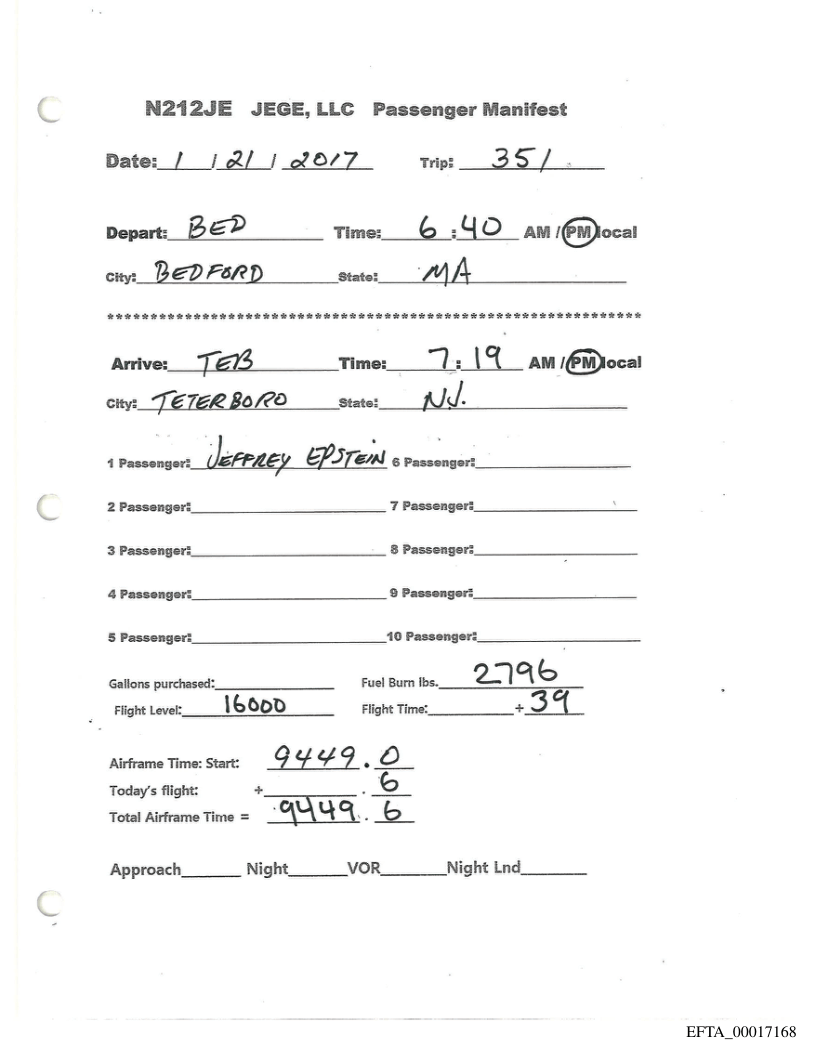 N212JE JEGE, LLC Passenger Manifest
Date: 1 / 21 / 2017 Trip: 351
Depart: BED Time: 6 : 40 AM / PM local
City: BEDFORD State: MA
**************************************************************
Arrive: TEB Time: 7 : 19 AM / PM local
City: TETERBORO State: NJ.
1 Passenger: JEFFREY EPSTEIN 6 Passenger:
2 Passenger: 7 Passenger:
3 Passenger: 8 Passenger:
4 Passenger: 9 Passenger:
5 Passenger: 10 Passenger:
Gallons purchased: Fuel Burn lbs. 2796
Flight Level: 16000 Flight Time: + 39
Airframe Time: Start: 9449 . 0
Today's flight: + . 6
Total Airframe Time = 9449 . 6
Approach Night VOR Night Lnd
EFTA_00017168